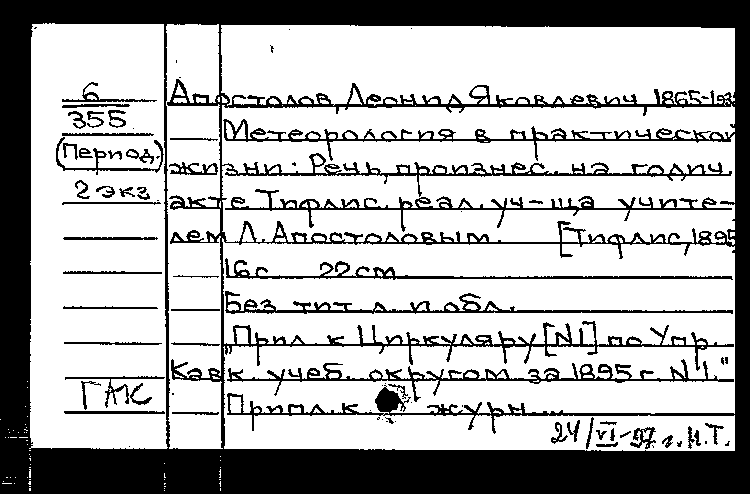 6
355
(Период.)
2 экз
Апостолов, Леонид Яковлевич, 1865-193
Метеорология в практической
жизни: Речь, произнес. на годич.
акте Тифлис. реал. уч-ща учите-
лем Л. Апостоловым. [Тифлис, 1895
16 с 22 см
Без тит. л. и обл.
"Прил. к Циркуляру [N1] по Упр.
Кавк. учеб. округом за 1895 г. N 1."
Припл. к журн....
ГАК
24/VI-97 г. Н.Т.